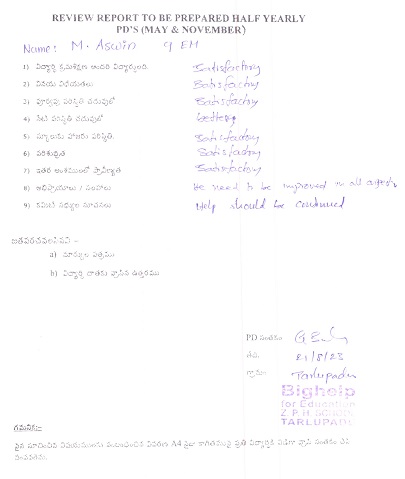 REVIEW REPORT TO BE PREPARED HALF YEARLY
PD'S (MAY & NOVEMBER)
Name: M. Aswin 9 EM
1) విద్యార్థి క్రమశిక్షణ Satisfactory
2) వినయ విధేయతలు Satisfactory
3) పూర్వపు పరిస్థితి చదువులో Satisfactory
4) నేటి పరిస్థితి చదువులో
5) స్కూలుకు హాజరు పరిస్థితి. Satisfactory
6) పరిశుభ్రత Satisfactory
7) ఇతర అంశములలో ప్రావీణ్యత Satisfactory
8) అభిప్రాయాలు / సలహాలు He need to be improved in all
9) కమిటీ సభ్యుల సూచనలు Help should be continued
జతపరచవలసినవి :-
a) మార్కుల పత్రము
b) విద్యార్థి దాతకు వ్రాసిన ఉత్తరము
PD సంతకం
తేది. 21/8/23
గ్రామం Tarlupadu
Bighelp
for Education
Z. P. H. School
TARLUPADU
గమనిక:-